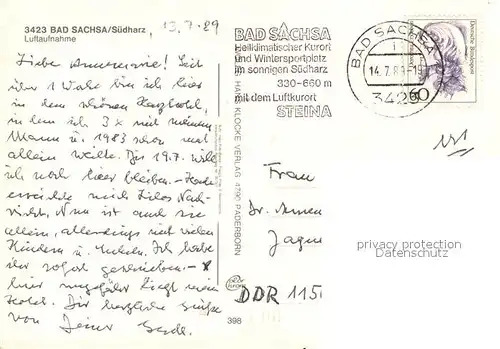 3423 BAD SACHSA/Südharz
Luftaufnahme
13.7.89
Liebe Annemarie! Seit
über 1 Woche bin ich hier
in dem schönen Harzhotel,
in dem ich 3x mit meinem
Mann u. 1983 schon mal
allein weilte. Bis 19.7. will
ich noch hier bleiben. - Heute
erreichte mich Lilos Nach-
richt. Nun ist auch sie
allein, allerdings mit vielen
Kindern u. Enkeln. Ich habe
ihr sofort geschrieben. -
hier ungefähr liegt mein
Hotel. Dir herzliche Grüße
von Deiner
VERLAG 4790 PADERBORN
398
BAD SACHSA
Heilklimatischer Kurort
und Wintersportplatz
im sonnigen Südharz
330-660 m
mit dem Luftkurort
STEINA
BAD SACHSA
14.7.89-19
3423
Deutsche Bundespost
60
Frau
Dr.
DDR 115
privacy protection
Datenschutz